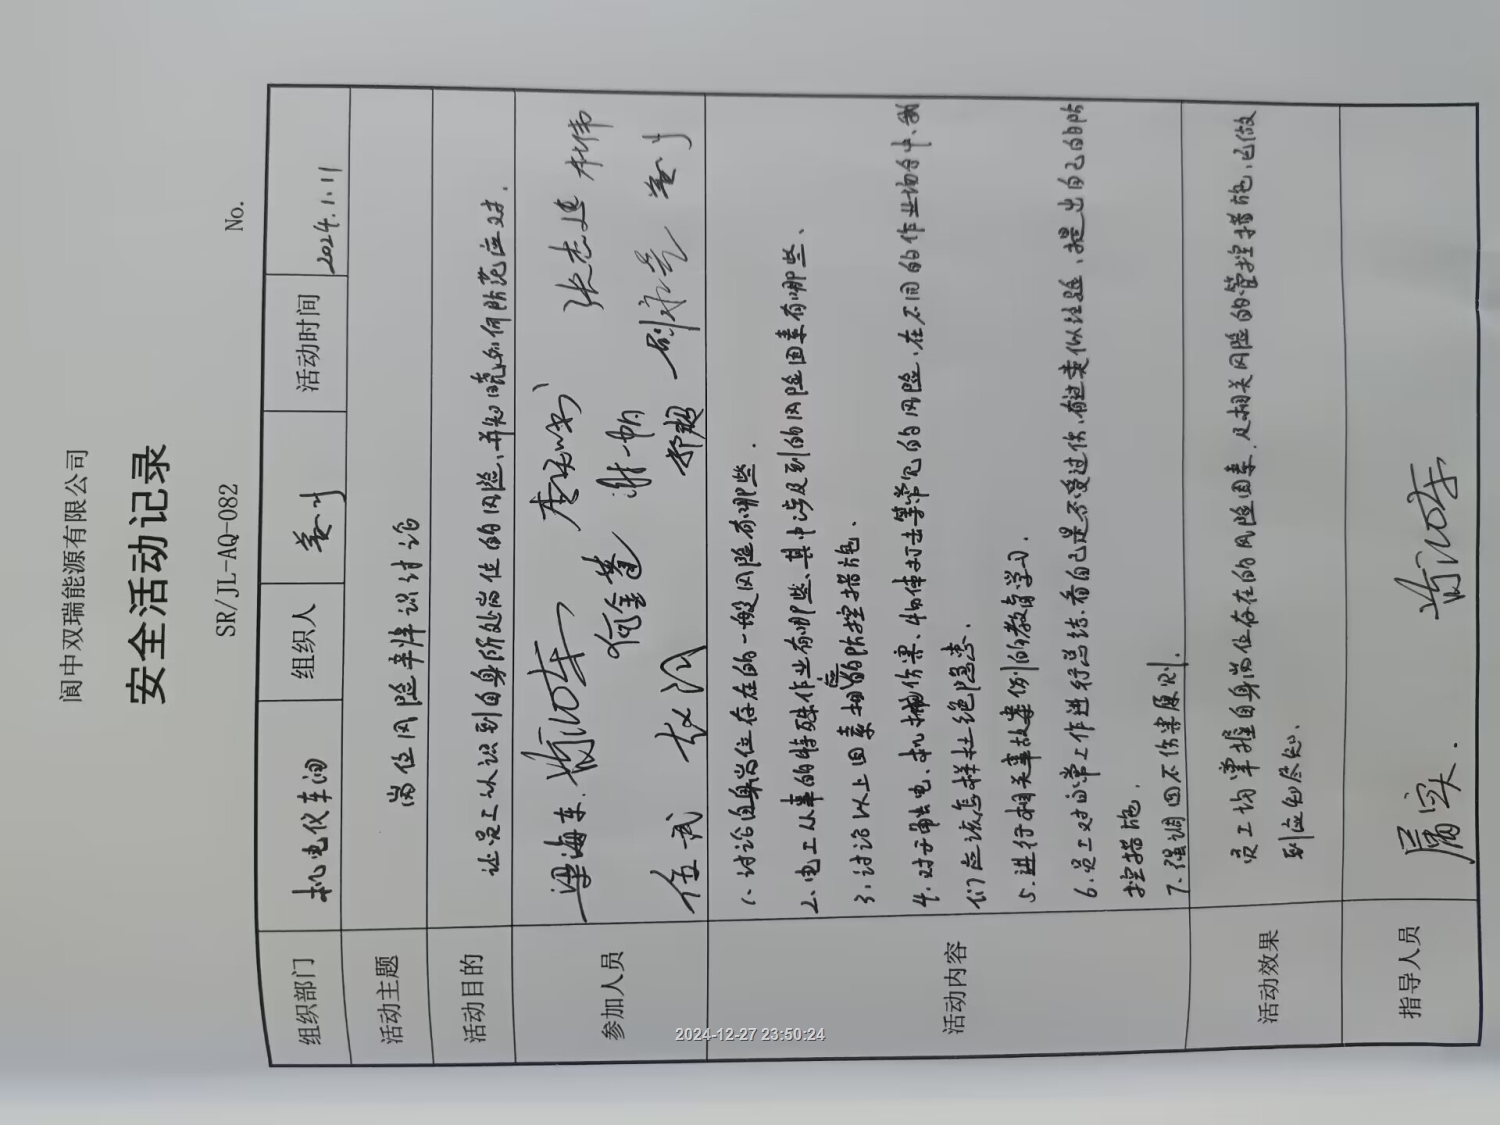 阆中双瑞能源有限公司
安全活动记录
SR/JL-AQ-082
No.
组织部门 机电仪车间 组织人 活动时间 2024.1.11
活动主题 岗位风险辛辨识讨论
活动目的 让员工认识到自身所处岗位的风险、并知晓如何防范应对.
参加人员 梁海东. 张志建 林伟
何金蓬 谢一帆
伍武 赵汎 舒超
活动内容 1、讨论自身岗位存在的一般风险有哪些.
2、电工从事的特殊作业有哪些、其中涉及到的风险因素有哪些、
3、讨论以上因素相应的防控措施.
4、对于触电、机械伤害、物体打击等常见的风险、在不同的作业场合中、我
们应该怎样杜绝隐患.
5、进行相关事故案例的教育学习.
6、员工对日常工作进行总结、看自己是不受过伤、有过类似经验、提出自己的防
控措施.
7、强调四不伤害原则.
活动效果 员工均掌握自身岗位存在的风险因素、及相关风险的管控措施、已做
到应知尽知.
指导人员
2024-12-27 23:50:24